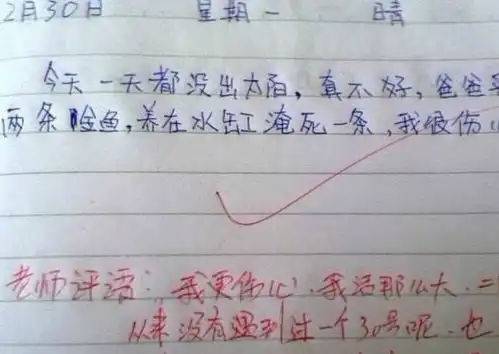 2月30日 星期一 晴
今天一天都没出太阳，真不好，爸爸
两条金鱼，养在水缸淹死一条，我很伤
老师评语：我更伤心．我活那么大．二
从来没有遇到过一个30号呢．也